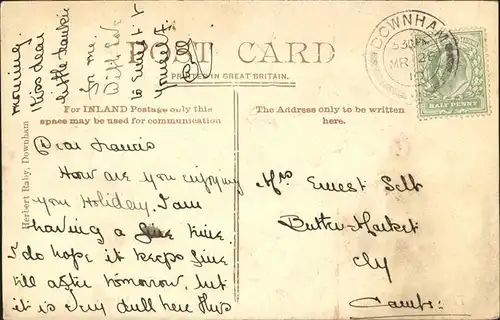 POST CARD
PRINTED IN GREAT BRITAIN.
For INLAND Postage only this
space may be used for communication
The Address only to be written
here.
Herbert Raby, Downham
Dear Francis
How are you enjoying
your Holiday. I am
having a fine time.
I do hope it keeps fine
till after tomorrow, but
it is very dull here this
morning.
Kiss dear
little Frankie
for me.
With love
to Ernest &
yourself.
Mrs Ernest Selt
Butter-Market
Ely
Cambs:
DOWNHAM
MR 26
HALF PENNY